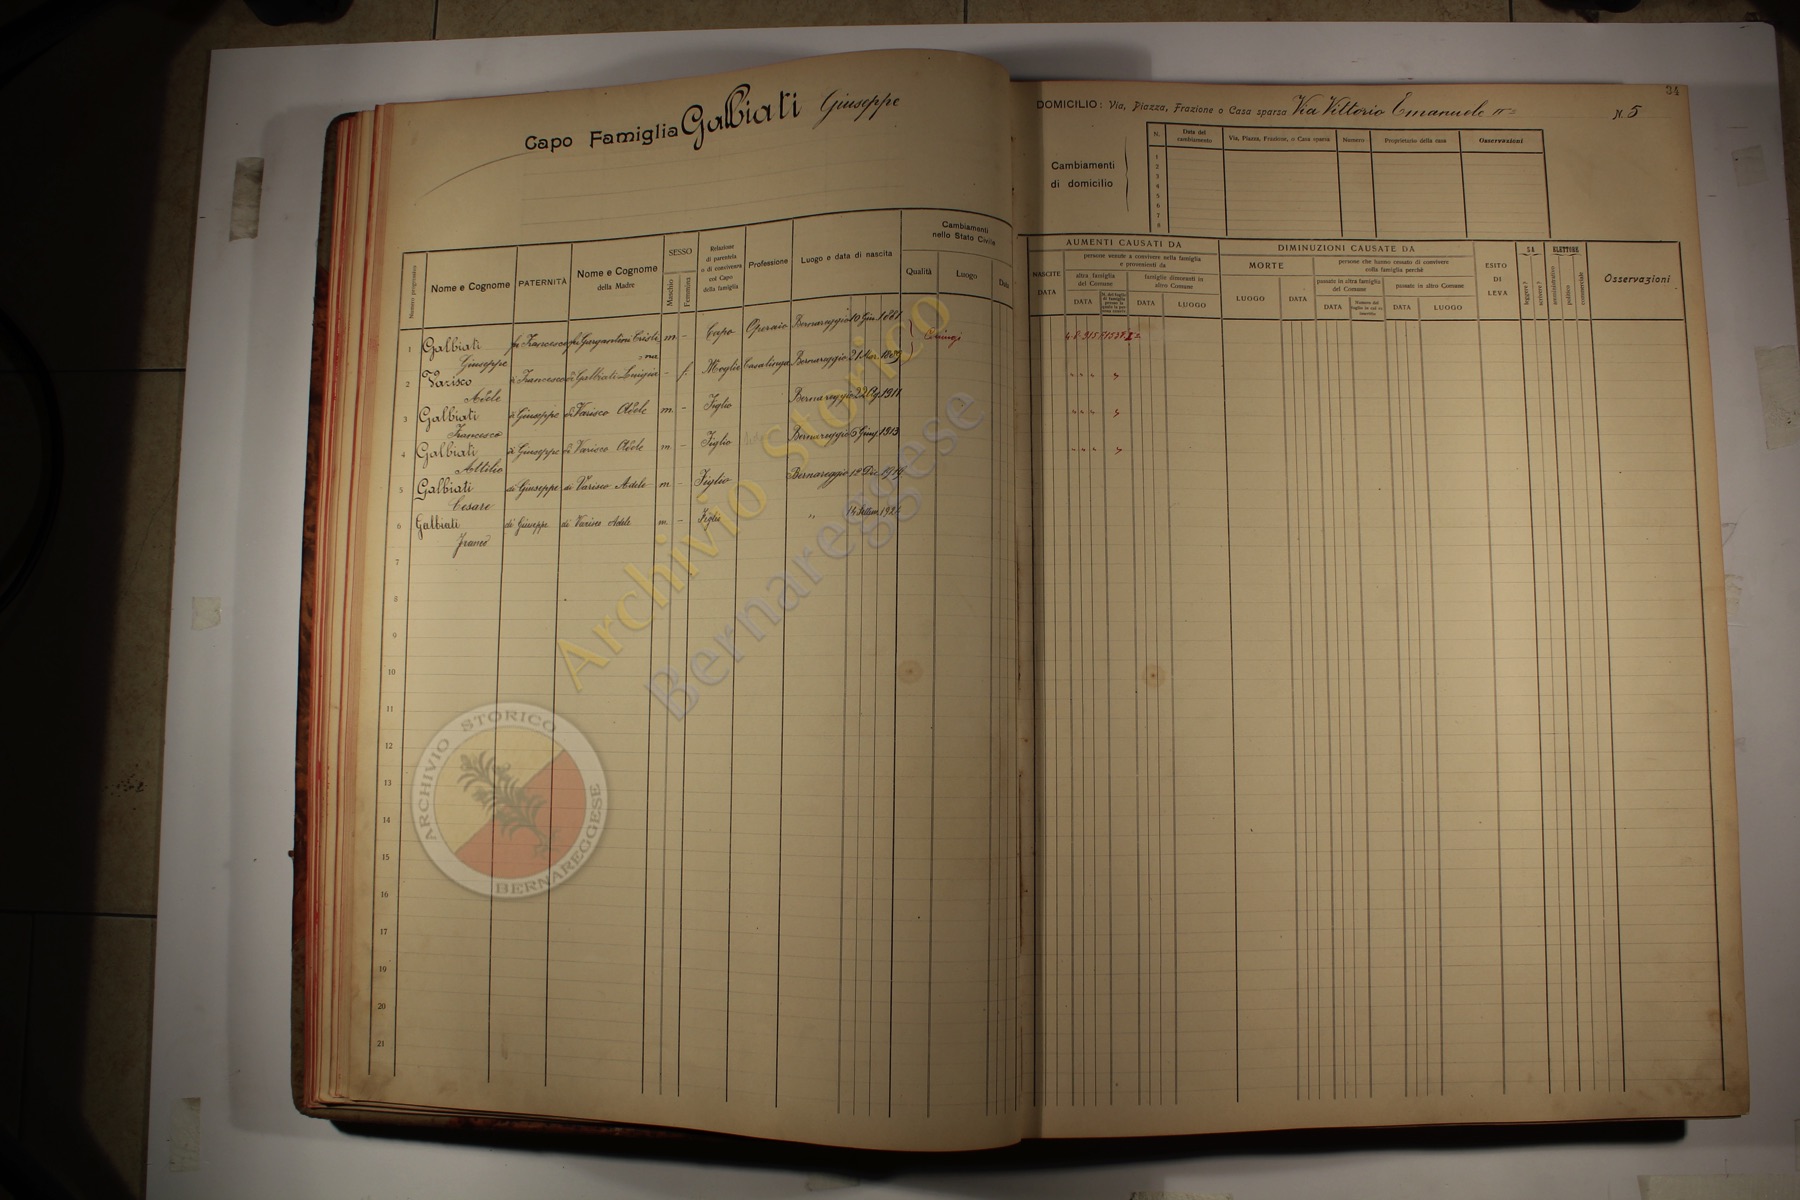 Capo Famiglia Galbiati Giuseppe
Numero progressivo
Nome e Cognome
PATERNITÀ
Nome e Cognome
della Madre
SESSO
Maschio
Femmina
Relazione
di parentela
o di convivenza
col Capo
della famiglia
Professione
Luogo e data di nascita
Cambiamenti
nello Stato Civile
Qualità
Luogo
Data
1 Galbiati fu Francesco fu Gargantini Cristi m - Capo Operaio Bernareggio 10 Giu. 1881
Giuseppe na
2 Varisco di Francesco di Galbiati Luigia - f. Moglie Casalinga Bernareggio 21 Mar.
Adele
3 Galbiati di Giuseppe di Varisco Adele m. - Figlio Bernareggio 22 Ag. 1911
Francesco
4 Galbiati di Giuseppe di Varisco Adele m - Figlio Bernareggio 5 Giug. 1913
Attilio
5 Galbiati di Giuseppe di Varisco Adele m - Figlio Bernareggio 12 Dic. 1919
Cesare
6 Galbiati di Giuseppe di Varisco Adele m. - Figlio „ 14 Settem. 1924
Franco
7
8
9
10
11
12
13
14
15
16
17
19
20
21
34
DOMICILIO: Via, Piazza, Frazione o Casa sparsa Via Vittorio Emanuele II° N. 5
Cambiamenti
di domicilio
N.
Data del
cambiamento
Via, Piazza, Frazione, o Casa sparsa
Numero
Proprietario della casa
Osservazioni
1
2
3
4
5
6
7
8
AUMENTI CAUSATI DA
NASCITE
DATA
persone venute a convivere nella famiglia
e provenienti da
altra famiglia
del Comune
famiglie dimoranti in
altro Comune
DATA
DATA
LUOGO
DIMINUZIONI CAUSATE DA
MORTE
LUOGO
DATA
persone che hanno cessato di convivere
colla famiglia perchè
passate in altra famiglia
del Comune
passate in altro Comune
DATA
DATA
LUOGO
ESITO
DI
LEVA
SA
leggere?
scrivere?
ELETTORE
amministrativo
politico
commerciale
Osservazioni
Archivio Storico
Bernareggese
ARCHIVIO STORICO
BERNAREGGESE